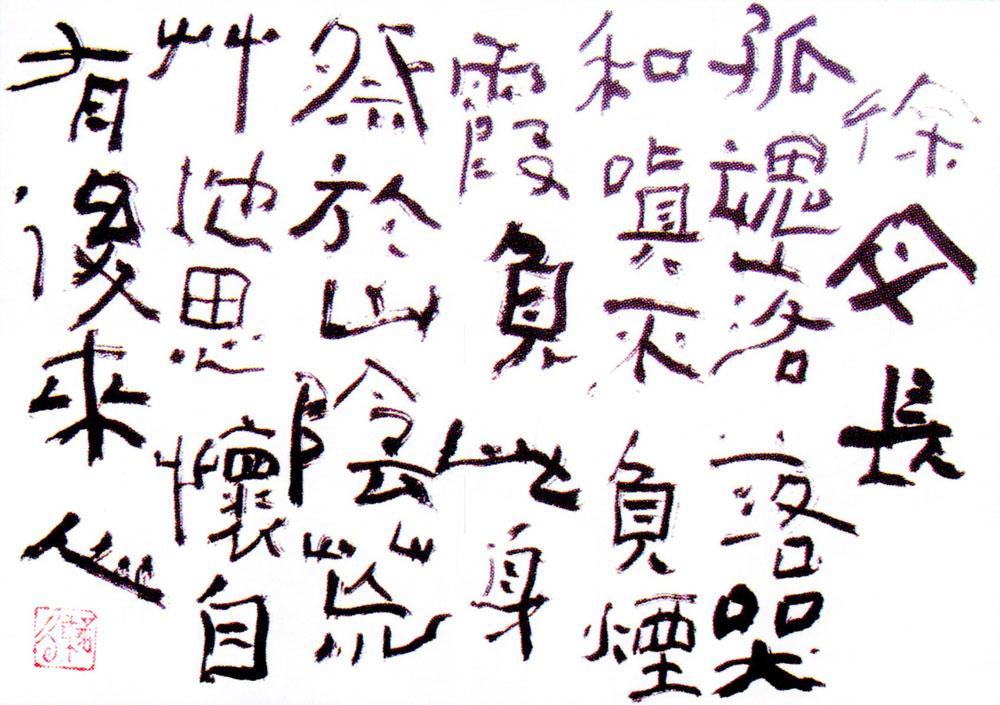 徐文長
孤魂落落哭
和嗔不負煙
霞負此身
祭於山陰荒
艸地思懷自
有後來人